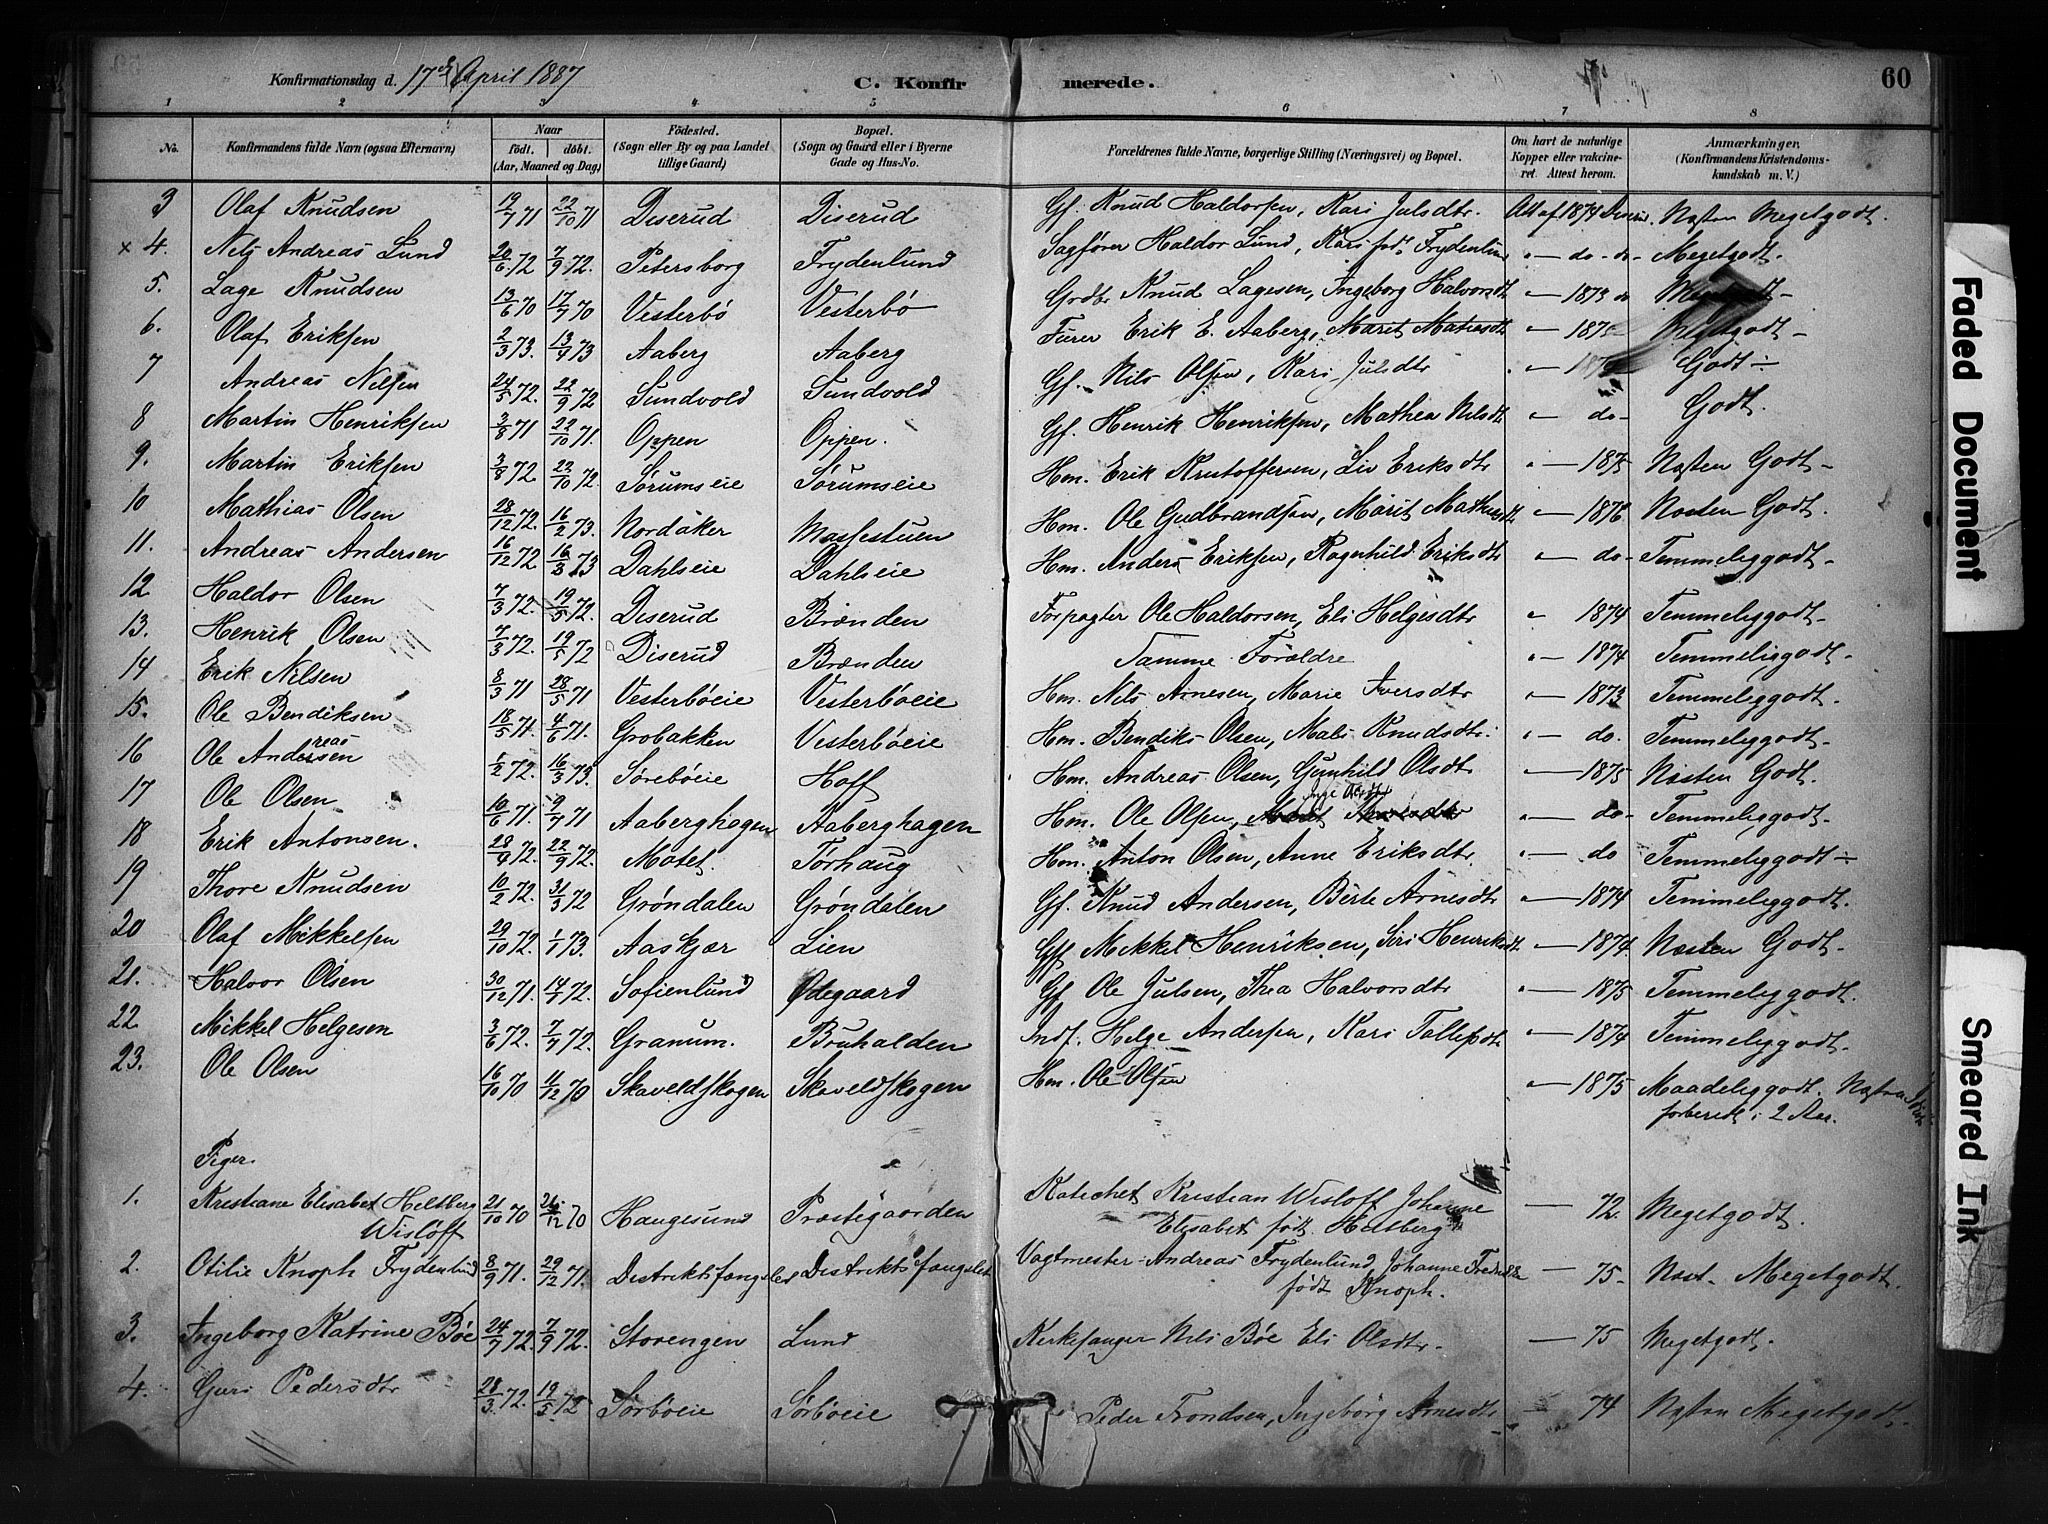 Konfirmationsdag d. 17de April 1887 C. Konfirmerede. 60
1 2 3 4 5 6 7 8
No. Konfirmandens fulde Navn (ogsaa Efternavn) Naar födt. döbt. (Aar, Maaned og Dag) Födested. (Sogn eller By og paa Landet tillige Gaard) Bopæl. (Sogn og Gaard eller i Byerne Gade og Hus-No. Forældrenes fulde Navne, borgerlige Stilling (Næringsvei) og Bopæl. Om havt de naturlige Kopper eller vaccineret. Attest herom. Anmærkninger. (Konfirmandens Kristendomskundskab m. V.)
3 Olaf Knudsen 19/7 71 22/10 71 Diserud Diserud Gf. Knud Haldorsen, Kari Julsdtr. Att af 1874 Næsten Megetgodt.
x 4. Nels Andreas Lund 26/6 72 7/9 72. Petersborg Frydenlund Sagfører Haldor Lund, Kari fød Frydenlund " — do - do - Megetgodt.
5. Lage Knudsen 13/6 70 17/7 70 Vesterbö Vesterbö Grdbr Knud Lagesen, Ingeborg Halvorsdtr " — 1873 do
6. Olaf Eriksen 2/3 73. 13/4 73 Aaberg Aaberg Furer Erik E. Aaberg, Marit Matiasdtr " — 1875 - Megetgodt -
7 Andreas Nilsen 24/5 72. 22/9 72 Sundvold Sundvold Gf. Nils Olsen, Kari Julsdtr Godt ÷
8 Martin Henriksen 3/8 71 22/10 71. Oppen Oppen. Gf. Henrik Henriksen, Mathea Nilsdtr " — do - Godt.
9. Martin Eriksen 3/8 72. 22/10 72. Sörumseie Sörumseie Hm. Erik Kristoffersen, Liv Eriksdtr " — 1875 Næsten Godt -
10 Mathias Olsen 28/12 72. 16/2 73. Nordaker Massestuen Hm. Ole Gudbrandsen, Marit Mathiasdtr " — 1876 Næsten Godt.
11. Andreas Andersen 16/12 72 16/3 73 Dahlseie Dahlseie Hm. Anders Eriksen, Ragnhild Eriksdtr " — do - Temmeliggodt -
12 Haldor Olsen 7/3 72. 19/5 72. Diserud Brænden Forpagter Ole Haldorsen, Eli Helgesdtr " 1874 Temmeliggodt -
13. Henrik Olsen 7/3 72. 19/5 72 Diserud Brænden Samme Forældre " — 1874 Temmeliggodt.
14 Erik Nilsen 8/3 71 28/5 71 Vesterböeie Vesterböeie Hm. Nils Arnesen, Marie Iversdtr " — 1873 Temmeliggodt.
15. Ole Bendiksen 18/5 71. 4/6 71. Grobakken Vesterböeie Hm. Bendiks Olsen, Mali Knudsdtr. " — do. Temmeliggodt -
16 Ole Andreassen 1/2 72. 16/3 73. Soreböeie Hoff Hm. Andreas Olsen, Gunhild Olsdtr " — 1875 Næsten Godt.
17 Ole Olsen 10/6 71. 9/7 71 Aaberghagen Aaberghagen Hm. Ole Olsen, " — do - Temmeliggodt.
18 Erik Antonsen. 28/4 72. 22/9 72. Motet. Torhaug Hm. Anton Olsen, Anne Eriksdtr. " — do Temmeliggodt ÷
19 Thore Knudsen 10/2 72. 31/3 72 Gröndalen Gröndalen Gf. Knud Andersen, Berte Arnesdtr " — 1874 Temmeliggodt.
20 Olaf Mikkelsen 29/10 72. 1/1 73. Aaskjær Lien Gff Mekkel Henriksen, Siri Henriksdtr — 1874. Næsten Godt.
21. Halvor Olsen 30/12 71. 14/1 72. Sofienlund Ødegaard Gf. Ole Julsen, Thea Halvorsdtr " — 1875 Temmeliggodt.
22. Mikkel Helgesen 3/6 72. 7/7 72. Granum. Bruhalden Indf. Helge Andersen, Kari Tollefsdtr " — 1874 Temmeliggodt.
23. Ole Olsen 16/10 70 11/12 70 Skaveldskogen Skaveldskogen Hm. Ole Olsen " — 1875 Maadeliggodt.
forberedt i 2 Aar.
Piger.
1. Kristiane Elisabet Heltberg 21/10 70 26/12 70 Haugesund Præstegaarden Katechet Kristian Wisloff Johanne — 72. Megetgodt.
Wislöff Elisabet født Heltberg
2. Otilie Knoph Frydenlund 8/9 71. 29/12 71. Distriktsfængslet Distriktsfængslet Vagtmester Andreas Frydenlund, Johanne Fredrikke — 75 - Næst. Megetgodt.
født Knoph.
3. Ingeborg Katrine Böe 24/7 72. 7/9 72. Storengen Lund Kirkesanger Nils Böe Eli Olsdtr. — 75 Megetgodt.
4. Guri Pedersdtr 28/3 72. 19/5 72 Sorböeie Sörböeie Peder Trondsen, Ingeborg Arnesdtr 74 Næsten Megetgodt.
Faded Document
Smeared Ink